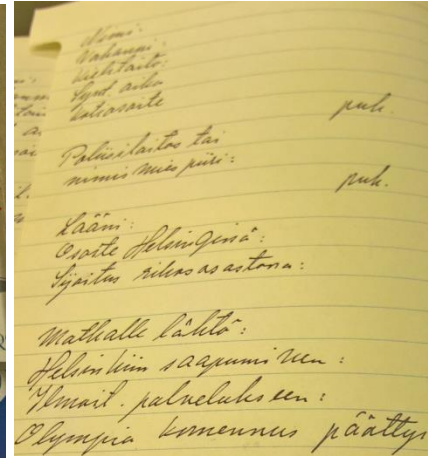 Nimi:
Vakanssi:
Kielitaito:
Synt. aika
Kotiosoite puh.
Poliisilaitos tai
nimismies piiri:
puh.
Lääni:
Osoite Helsingissä:
Sijoitus rikososastona:
Matkalle lähtö:
Helsinkiin saapuminen:
Ilmoit. palvelukseen:
Olympia komennus päättyi